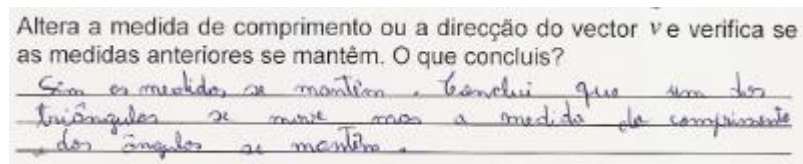 Altera a medida de comprimento ou a direcção do vector v e verifica se
as medidas anteriores se mantêm. O que concluis?
Sim as medidas se mantêm. Conclui que um dos
triângulos se move mas a medida do comprimento
dos ângulos se mantêm.